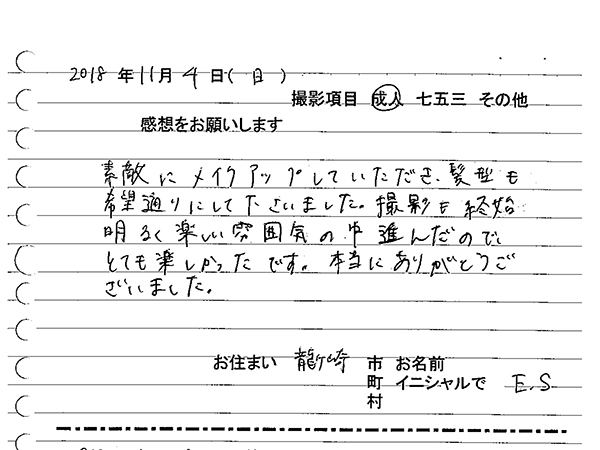 2018年11月4日(日)
撮影項目 成人 七五三 その他
感想をお願いします
素敵にメイクアップしていただき、髪型も
希望通りにして下さいました。撮影も終始
明るく楽しい雰囲気の中進んだので
とても楽しかったです。本当にありがとうご
ざいました。
お住まい 龍ヶ崎 市 お名前
町 イニシャルで E.S
村